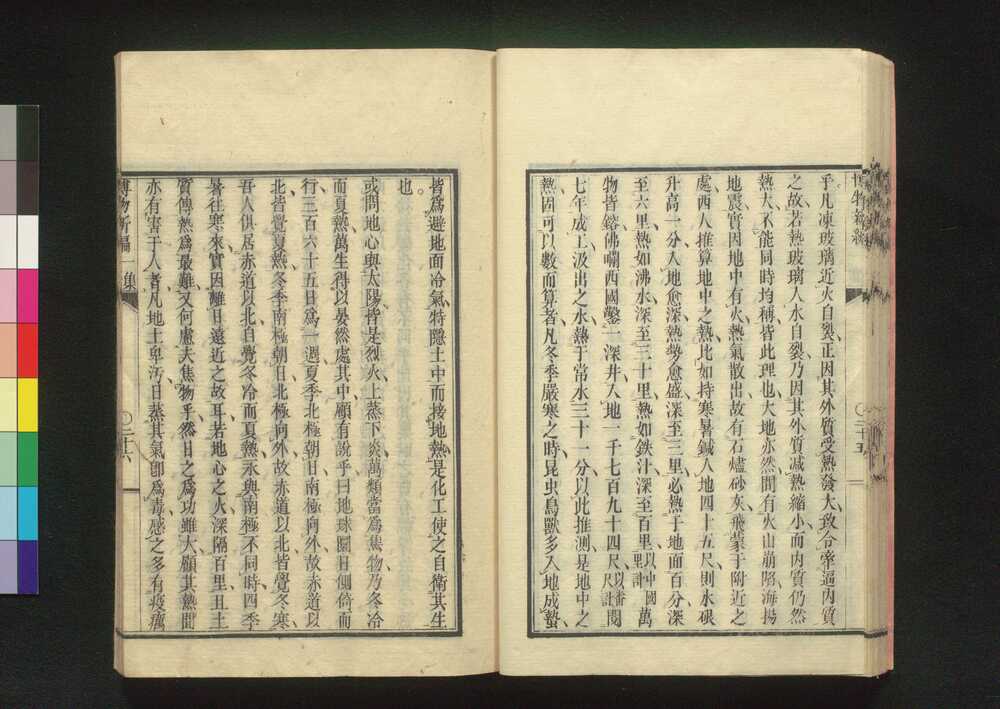 乎凡凍玻璃近火自裂正因其外質受熱發大致令牽逼內質
之故若熱玻璃入水自裂乃因其外質减熱縮小而內質仍然
熱大不能同時均稱皆此理也大地亦然間有火山崩陷海揚
地震實因地中有火熱氣散出故有石燼砂灰飛蒙于附近之
處西人推算地中之熱比如持寒暑鍼入地四十五尺則水銀
升高一分入地愈深熱勢愈盛深至三里必熱于地面百分深
至六里熱如沸水深至三十里熱如鉄汁深至百里以中國里計萬
物皆鎔佛囒西國鑿一深井入地一千七百九十四尺以番尺計閱
七年成工汲出之水熱于常水三十一分以此推測是地中之
熱固可以數而算者凡冬季嚴寒之時昆虫鳥獸多入地成蟄
博物新編
二十五
皆爲避地面冷氣特隱土中而接地熱是化工使之自衛其生
也。
或問地心與太陽皆是烈火上蒸下炎萬類當爲焦物乃冬冷
而夏熱萬生得以晏然處其中顧有說乎曰地球圜日側倚而
行三百六十五日爲一週夏季北極朝日南極向外故赤道以
北皆覺夏熱冬季南極朝日北極向外故赤道以北皆覺冬寒
吾人俱居赤道以北自覺冬冷而夏熱永與南極不同時四季
暑往寒來實因離日遠近之故耳若地心之火深隔百里且土
質傳熱爲最難又何慮夫焦物乎然日之爲功雖大顧其熱間
亦有害于人者凡地土卑污日蒸其氣卽爲毒感之多有疫癘
博物新編一集
二十六